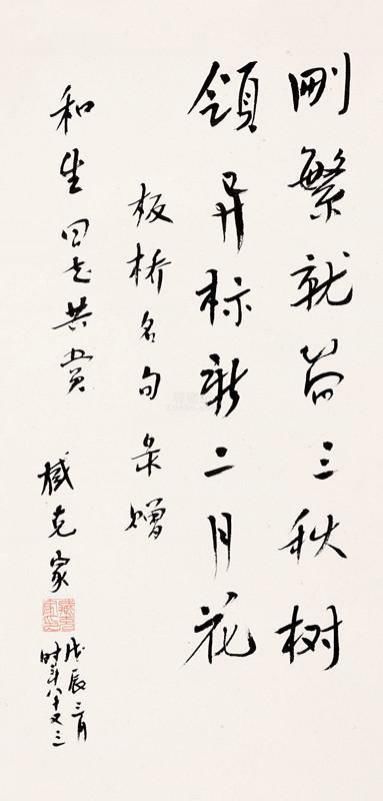 删繁就简三秋树
領异标新二月花
板桥名句录赠
和生同志共赏
臧克家
戊辰三月
时年八十又三